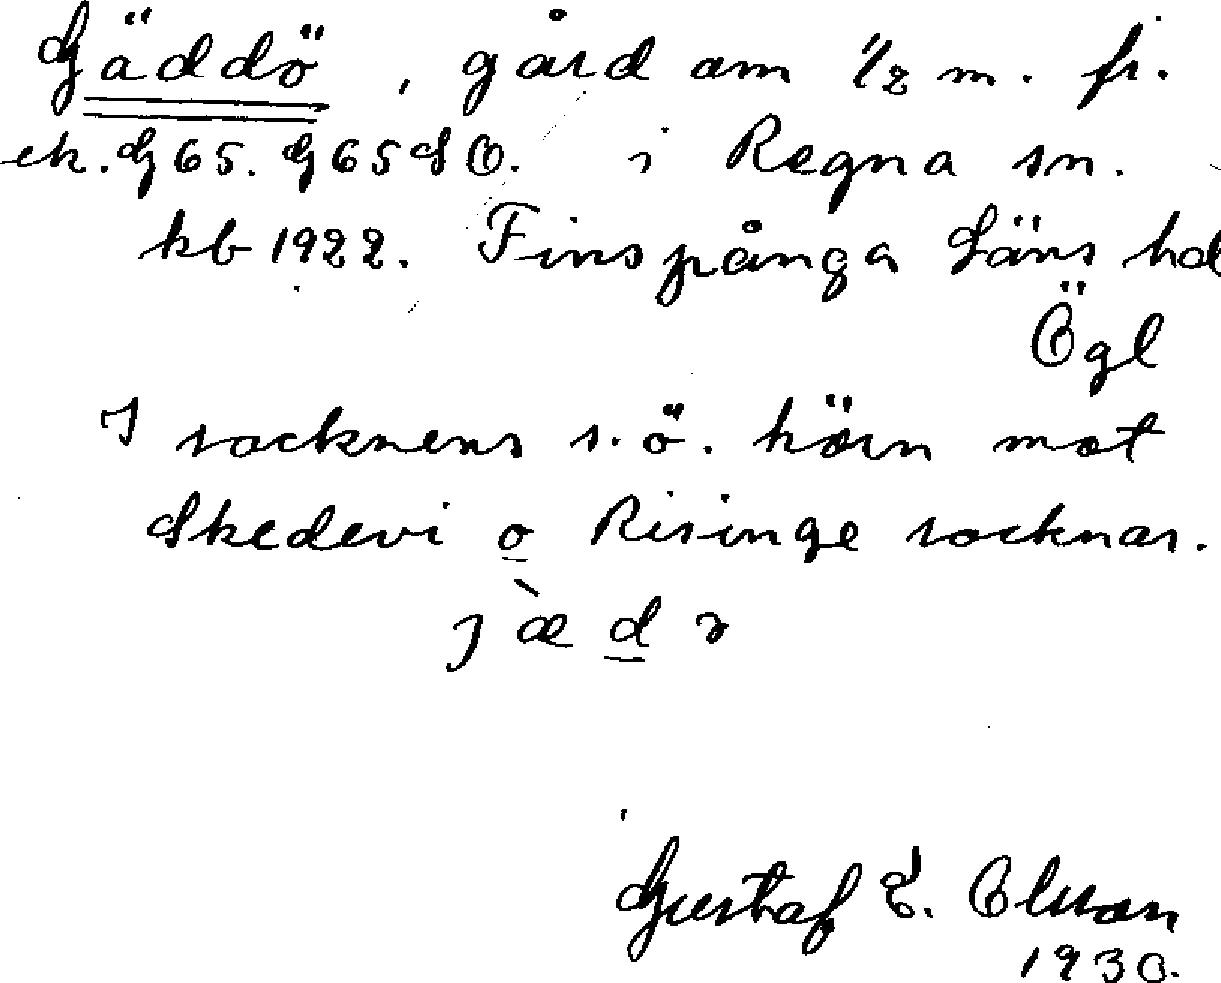 Gäddö, gård om 1/2 m. fr.
ek. G65. G65SO. i Regna sn.
kb 1922. Finspånga Läns hd
Ögl
I socknens s.ö. hörn mot
Skedevi o Risinge socknar.
j æ̀ d
Gustaf E. Olsson
1930.